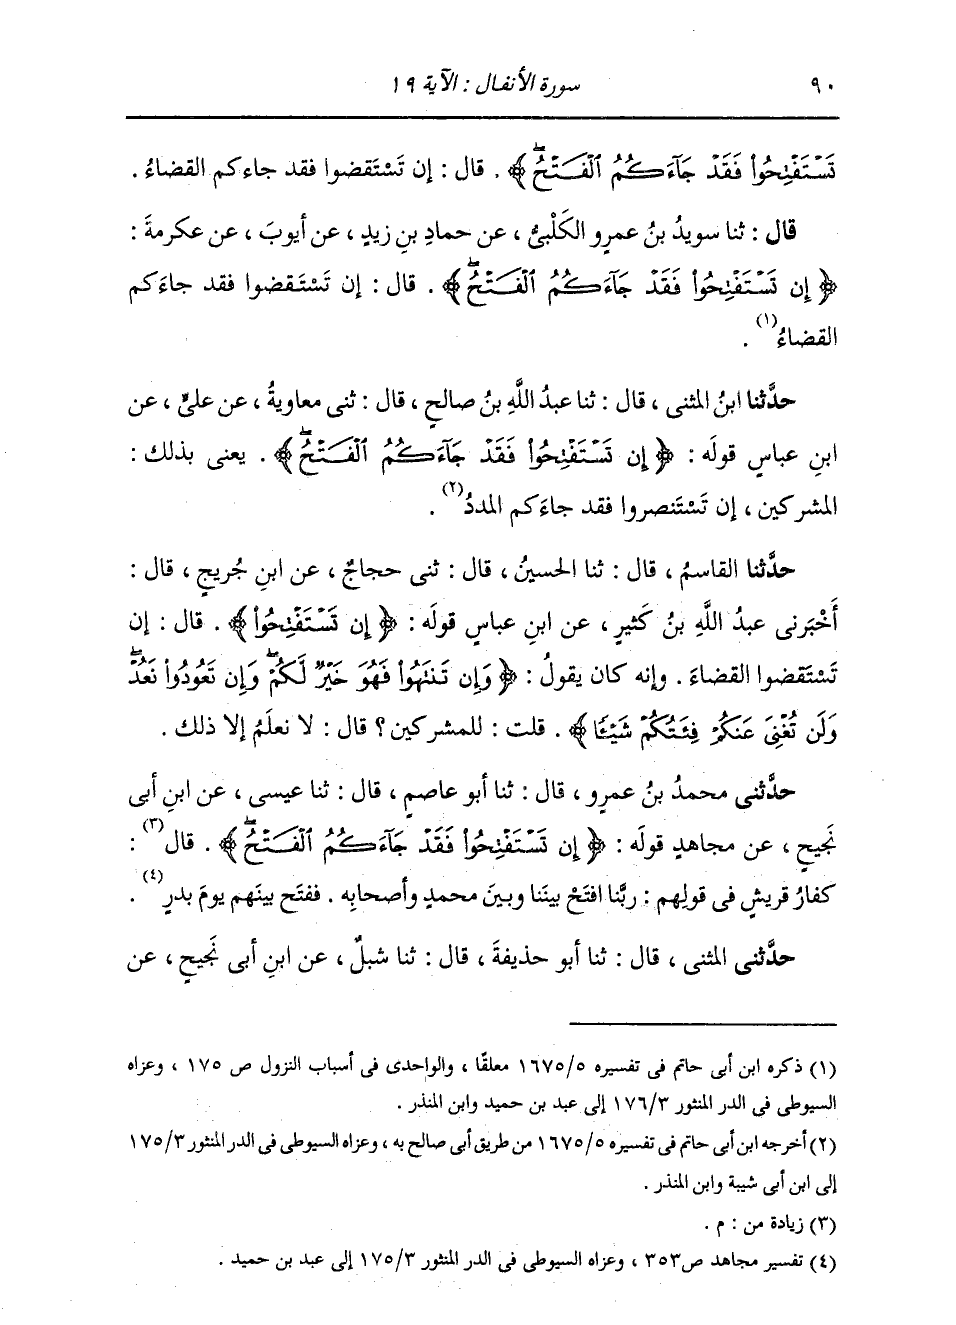 ٩٠
سورة الأنفال : الآية ١٩
تَسْتَفْنِحُوا۟ فَقَدْ جَآءَكُمُ ٱلْفَكَتْحُ﴾ . قال : إن تَسْتَقضوا فقد جاءكم القضاءُ .
قال : ثنا سويدُ بنُ عمرٍو الكَلْبيُّ ، عن حمادِ بنِ زيدٍ ، عن أيوبَ ، عن عكرمةَ :
﴿إِن تَسْتَفْتِحُوا۟ فَقَدْ جَآءَكُمُ ٱلْفَتْحُ﴾ . قال : إن تَسْتَقضوا فقد جاءَكم
القضاءُ(١) .
حدَّثنا ابنُ المثنى ، قال : ثنا عبدُ اللَّهِ بنُ صالحٍ ، قال : ثنى معاويةُ ، عن عليٍّ ، عن
ابنِ عباسٍ قولَه : ﴿إِن تَسْتَفْتِحُوا۟ فَقَدْ جَآءَكُمُ ٱلْفَتْحُ﴾ . يعنى بذلك :
المشركين ، إن تَسْتَنصروا فقد جاءَكم المددُ(٢) .
حدَّثنا القاسمُ ، قال : ثنا الحسينُ ، قال : ثنى حجاجٌ ، عن ابنِ جُريجٍ ، قال :
أَخْبَرنى عبدُ اللَّهِ بنُ كَثيرٍ ، عن ابنِ عباسٍ قولَه : ﴿إِن تَسْتَفْتِحُوا۟﴾ . قال : إن
تَسْتَقضوا القضاءَ . وإنه كان يقولُ : ﴿وَإِن تَنتَهُوا۟ فَهُوَ خَيْرٌ لَّكُمْ وَإِن تَعُودُوا۟ نَعُدْ
وَلَن تُغْنِىَ عَنكُمْ فِئَتُكُمْ شَيْـًٔا﴾ . قلت : للمشركين ؟ قال : لا نعلَمُ إلا ذلك .
حدَّثنى محمدُ بنُ عمرٍو ، قال : ثنا أبو عاصمٍ ، قال : ثنا عيسى ، عن ابنِ أبى
نَجيحٍ ، عن مجاهدٍ قولَه : ﴿إِن تَسْتَفْتِحُوا۟ فَقَدْ جَآءَكُمُ ٱلْفَتْحُ﴾ . قال(٣) :
كفارُ قريشٍ فى قولِهم : ربَّنا افتَحْ بينَنا وبينَ محمدٍ وأصحابِه . ففتَح بينَهم يومَ بدرٍ(٤) .
حدَّثنى المثنى ، قال : ثنا أبو حذيفةَ ، قال : ثنا شبلٌ ، عن ابنِ أبى نَجيحٍ ، عن
(١) ذكره ابن أبى حاتم فى تفسيره ١٦٧٥/٥ معلقًا ، والواحدى فى أسباب النزول ص ١٧٥ ، وعزاه
السيوطى فى الدر المنثور ١٧٦/٣ إلى عبد بن حميد وابن المنذر .
(٢) أخرجه ابن أبى حاتم فى تفسيره ١٦٧٥/٥ من طريق أبى صالح به ، وعزاه السيوطى فى الدر المنثور ١٧٥/٣
إلى ابن أبى شيبة وابن المنذر .
(٣) زيادة من : م .
(٤) تفسير مجاهد ص٣٥٣ ، وعزاه السيوطى فى الدر المنثور ١٧٥/٣ إلى عبد بن حميد .